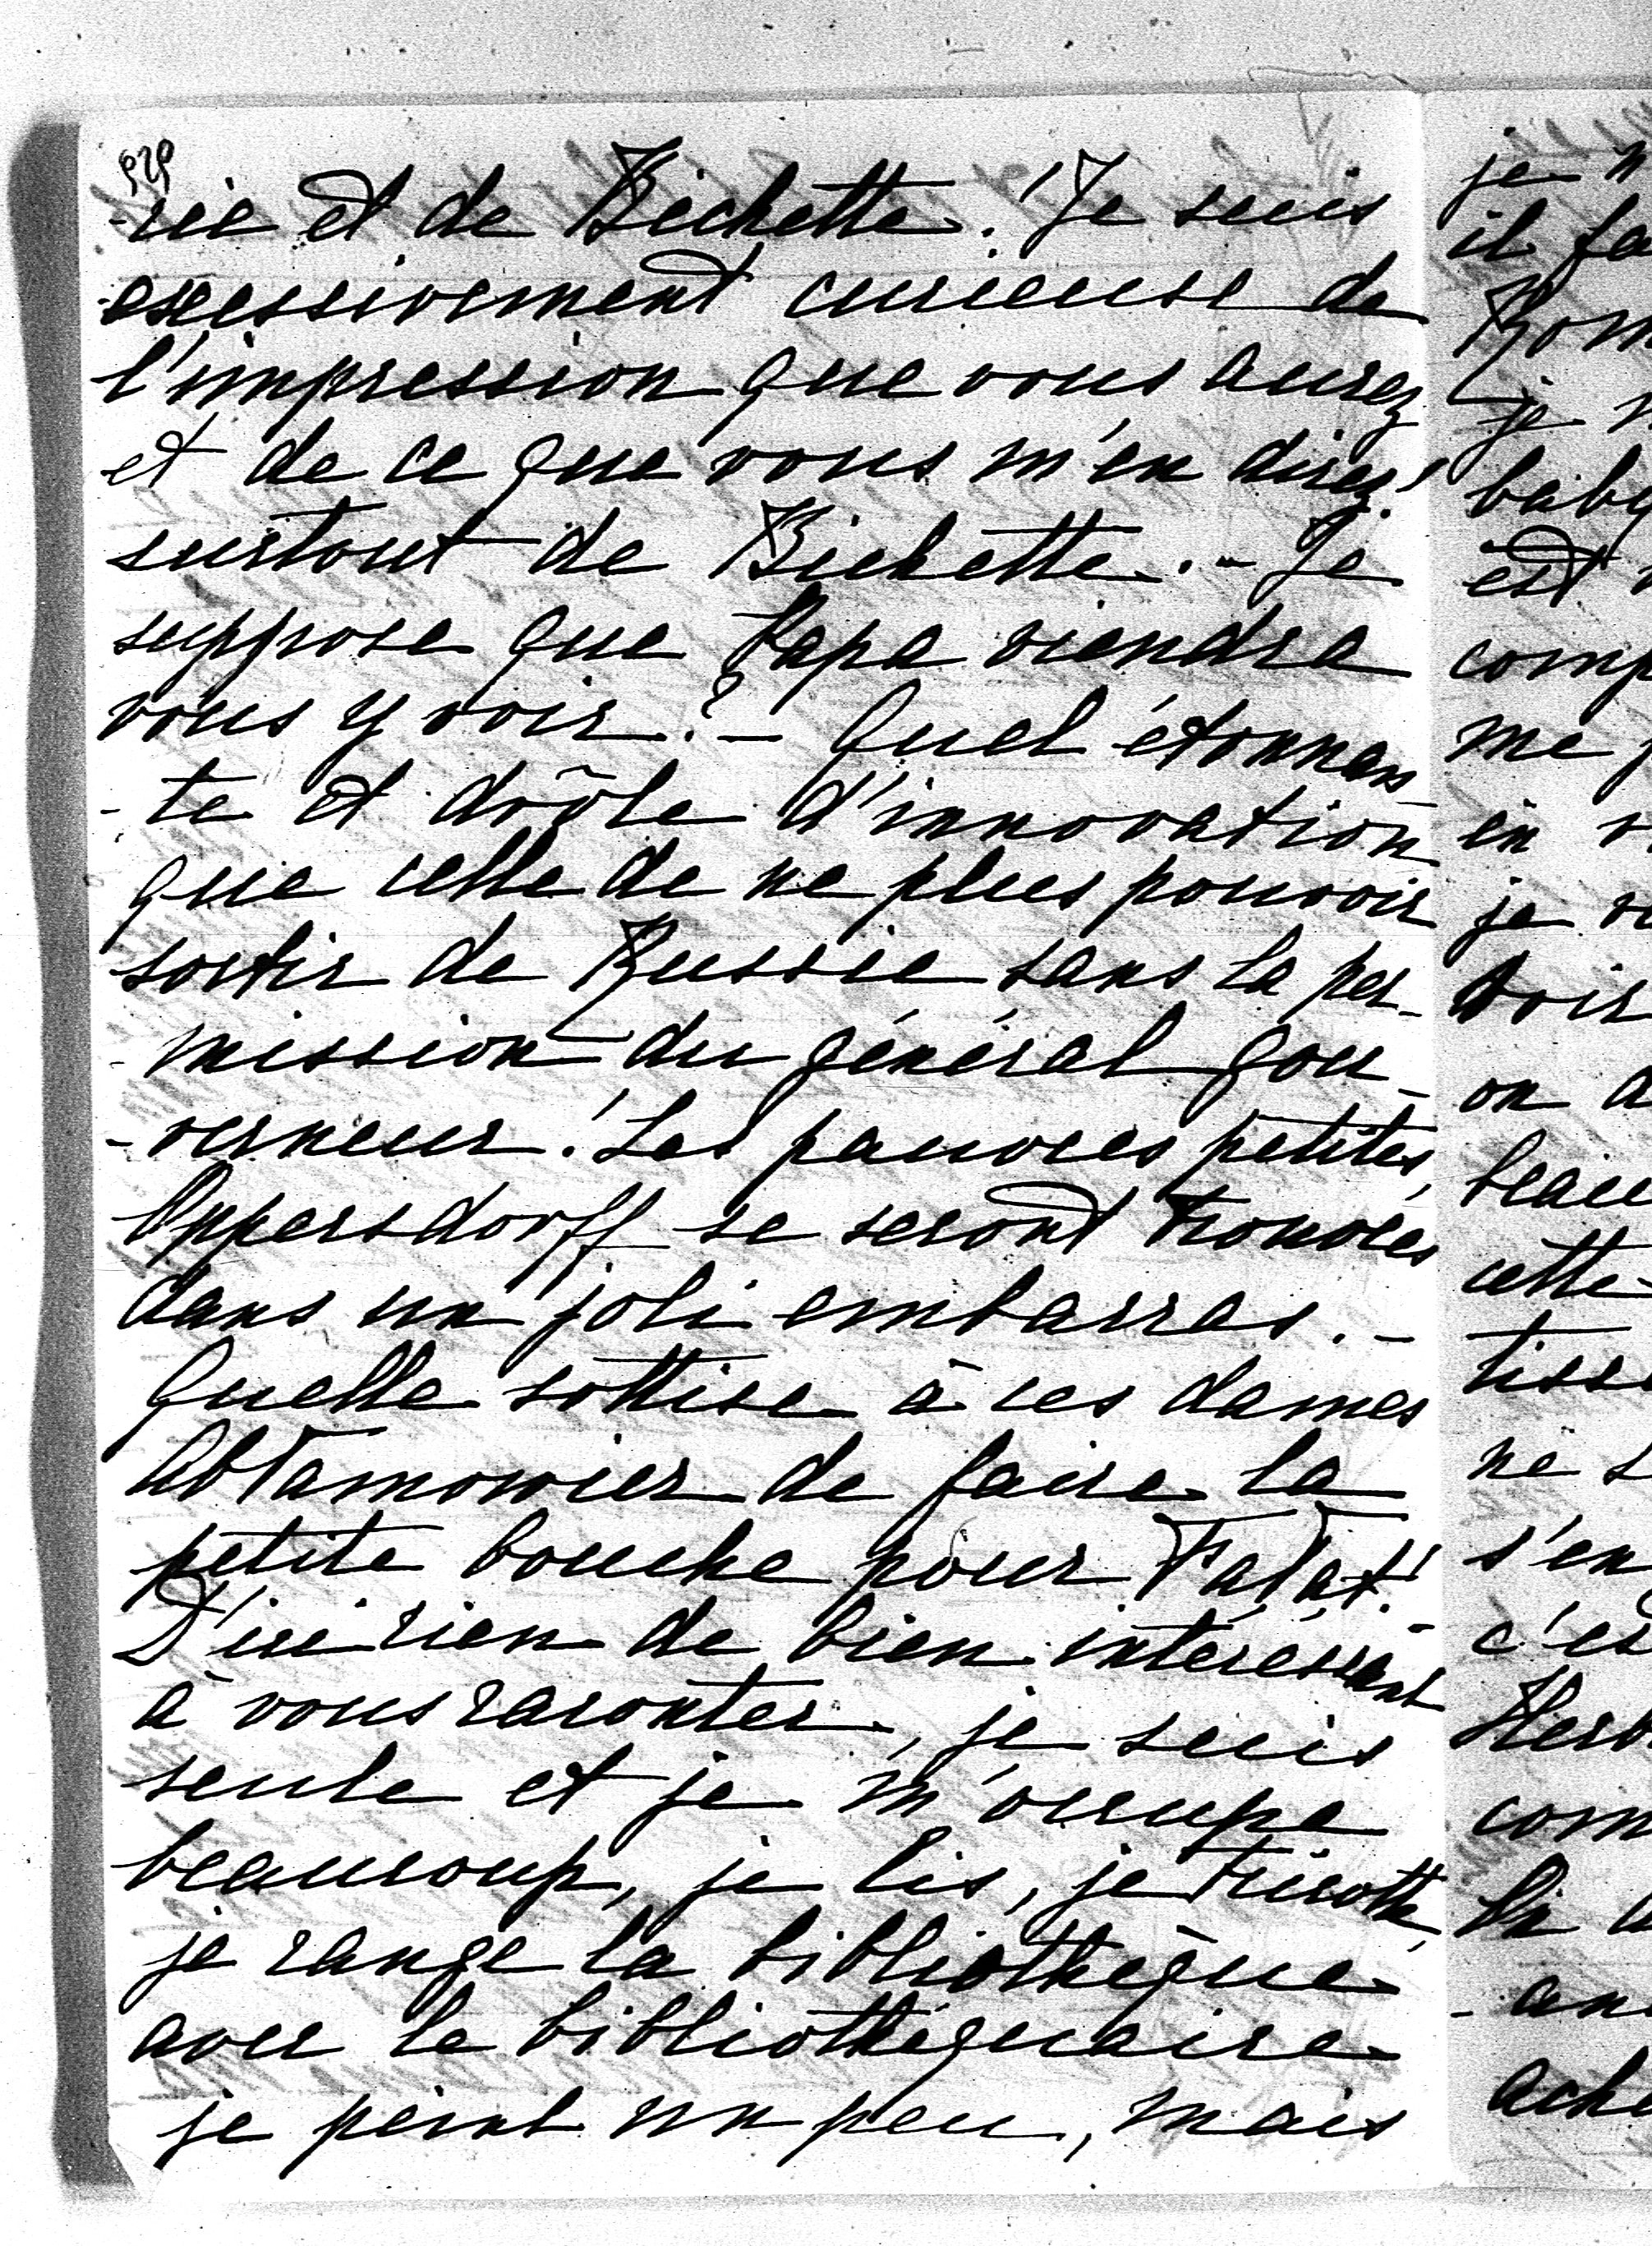 929
-rie et de Bichette! Je suis
excessivement curieuse de
l'impression que vous aurez
et de ce que vous m'en direz!
surtout de Bichette. - Je
suppose que Papa viendra
vous y voir? - Quel étonnan-
-te et drôle d'innovation
que celle de ne plus pouvoir
sortir de Russie sans la per-
-mission du général gou-
-verneur! Les pauvres petites
Oppersdorff se seront trouvées
dans un joli embarras. -
Quelle sottise à ces dames
Abtamowicz de faire la
petite bouche pour Fatat!
D'ici rien de bien intéréssant
à vous raconter, je suis
seule et je m'occupe
beaucoup, je lis, je tricotte,
je range la bibliothèque
avec le bibliothéquaire
je peint un peu, mais
je n
il fa
Rom
je n
baby
est
comp
me
en v
je v
voir
on a
beau
cette
tisse
ne s
s'en
c'es
Her
com
an
ache